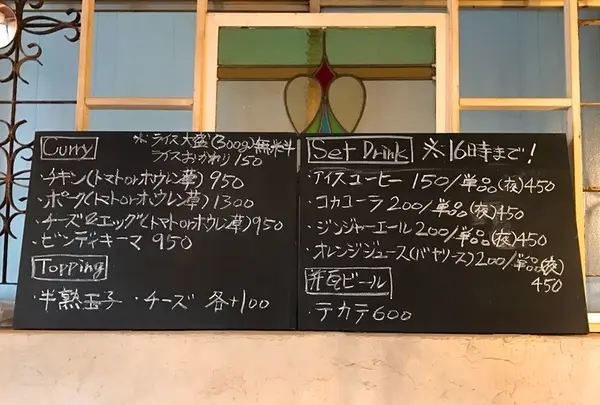 Curry
※ライス大盛(300g)無料
ライスおかわり150
・チキン(トマトorホウレン草) 950
・ポーク(トマトorホウレン草) 1300
・チーズ&エッグ(トマトorホウレン草) 950
・ビンディキーマ 950
Topping
・半熟玉子 ・チーズ 各+100
Set Drink ※16時まで!
・アイスコーヒー 150/単品(夜)450
・コカコーラ 200/単品(夜)450
・ジンジャーエール 200/単品(夜)450
・オレンジジュース(バヤリース)200/単品(夜)
450
ビール
・テカテ600